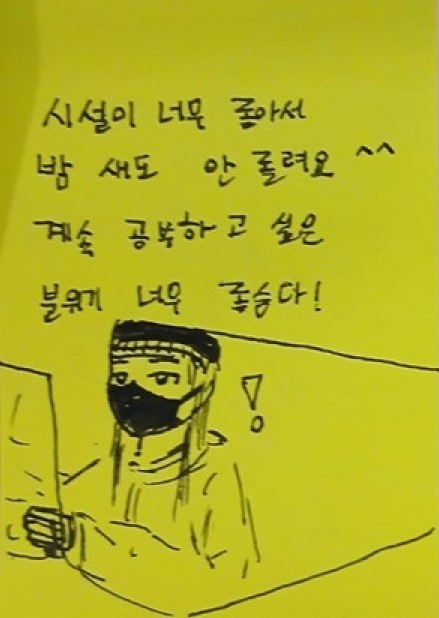 시설이 너무 좋아서
밤 새도 안 졸려요 ^^
계속 공부하고 싶은
분위기 너무 좋습다!
!